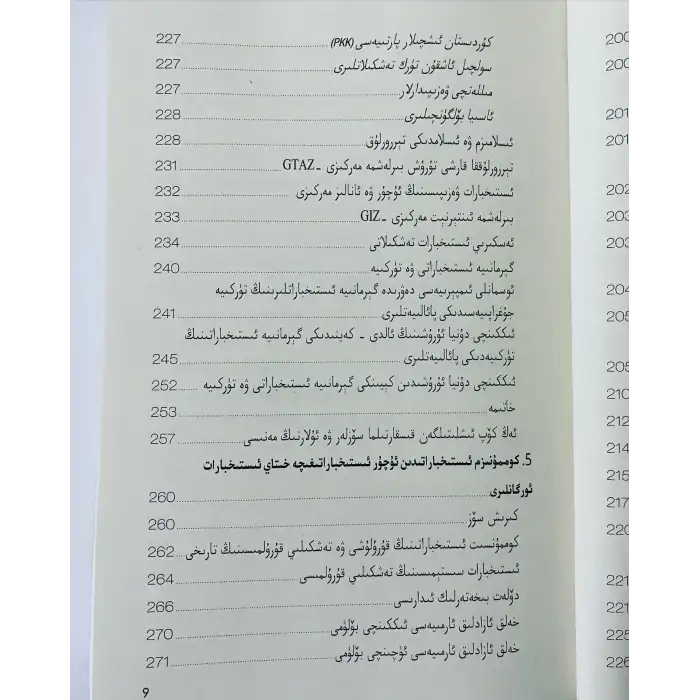 كۇردىستان ئىشچىلار پارتىيەسى (PKK) 227
سولچىل ئاشقۇن تۈرك تەشكىلاتلىرى 227
مىللەتچى ۋەزىپىدارلار 227
ئاسىيا بۆلگۈنچىلىرى 228
ئىسلامىزم ۋە ئىسلامدىكى تېررورلۇق 228
تېررورلۇققا قارشى تۇرۇش بىرلەشمە مەركىزى ـ GTAZ 231
ئىستىخبارات ۋەزىپىسىنىڭ ئۇچۇر ۋە ئانالىز مەركىزى 232
بىرلەشمە ئىنتېرنېت مەركىزى ـ GIZ 233
ئەسكىرىي ئىستىخبارات تەشكىلاتى 234
گېرمانىيە ئىستىخباراتى ۋە تۈركىيە 240
ئوسمانلى ئىمپېرىيەسى دەۋرىدە گېرمانىيە ئىستىخباراتلىرىنىڭ تۈركىيە
جۇغراپىيەسىدىكى پائالىيەتلىرى 241
ئىككىنچى دۇنيا ئۇرۇشىنىڭ ئالدى ـ كەينىدىكى گېرمانىيە ئىستىخباراتىنىڭ
تۈركىيەدىكى پائالىيەتلىرى 245
ئىككىنچى دۇنيا ئۇرۇشىدىن كېيىنكى گېرمانىيە ئىستىخباراتى ۋە تۈركىيە 252
خاتىمە 253
ئەڭ كۆپ ئىشلىتىلگەن قىسقارتىلما سۆزلەر ۋە ئۇلارنىڭ مەنىسى 257
5. كوممۇنىزم ئىستىخباراتىدىن ئۇچۇر ئىستىخباراتىغىچە خىتاي ئىستىخبارات
ئورگانلىرى 260
كىرىش سۆز 260
كوممۇنىست ئىستىخباراتىنىڭ قۇرۇلۇشى ۋە تەشكىلىي قۇرۇلمىسىنىڭ تارىخى 262
ئىستىخبارات سىستېمىسىنىڭ تەشكىلىي قۇرۇلمىسى 264
دۆلەت بىخەتەرلىك ئىدارىسى 266
خەلق ئازادلىق ئارمىيەسى ئىككىنچى بۆلۈمى 270
خەلق ئازادلىق ئارمىيەسى ئۈچىنچى بۆلۈمى 271
9
200
200
201
201
202
203
203
204
205
205
210
212
214
215
217
220
221
221
225
226